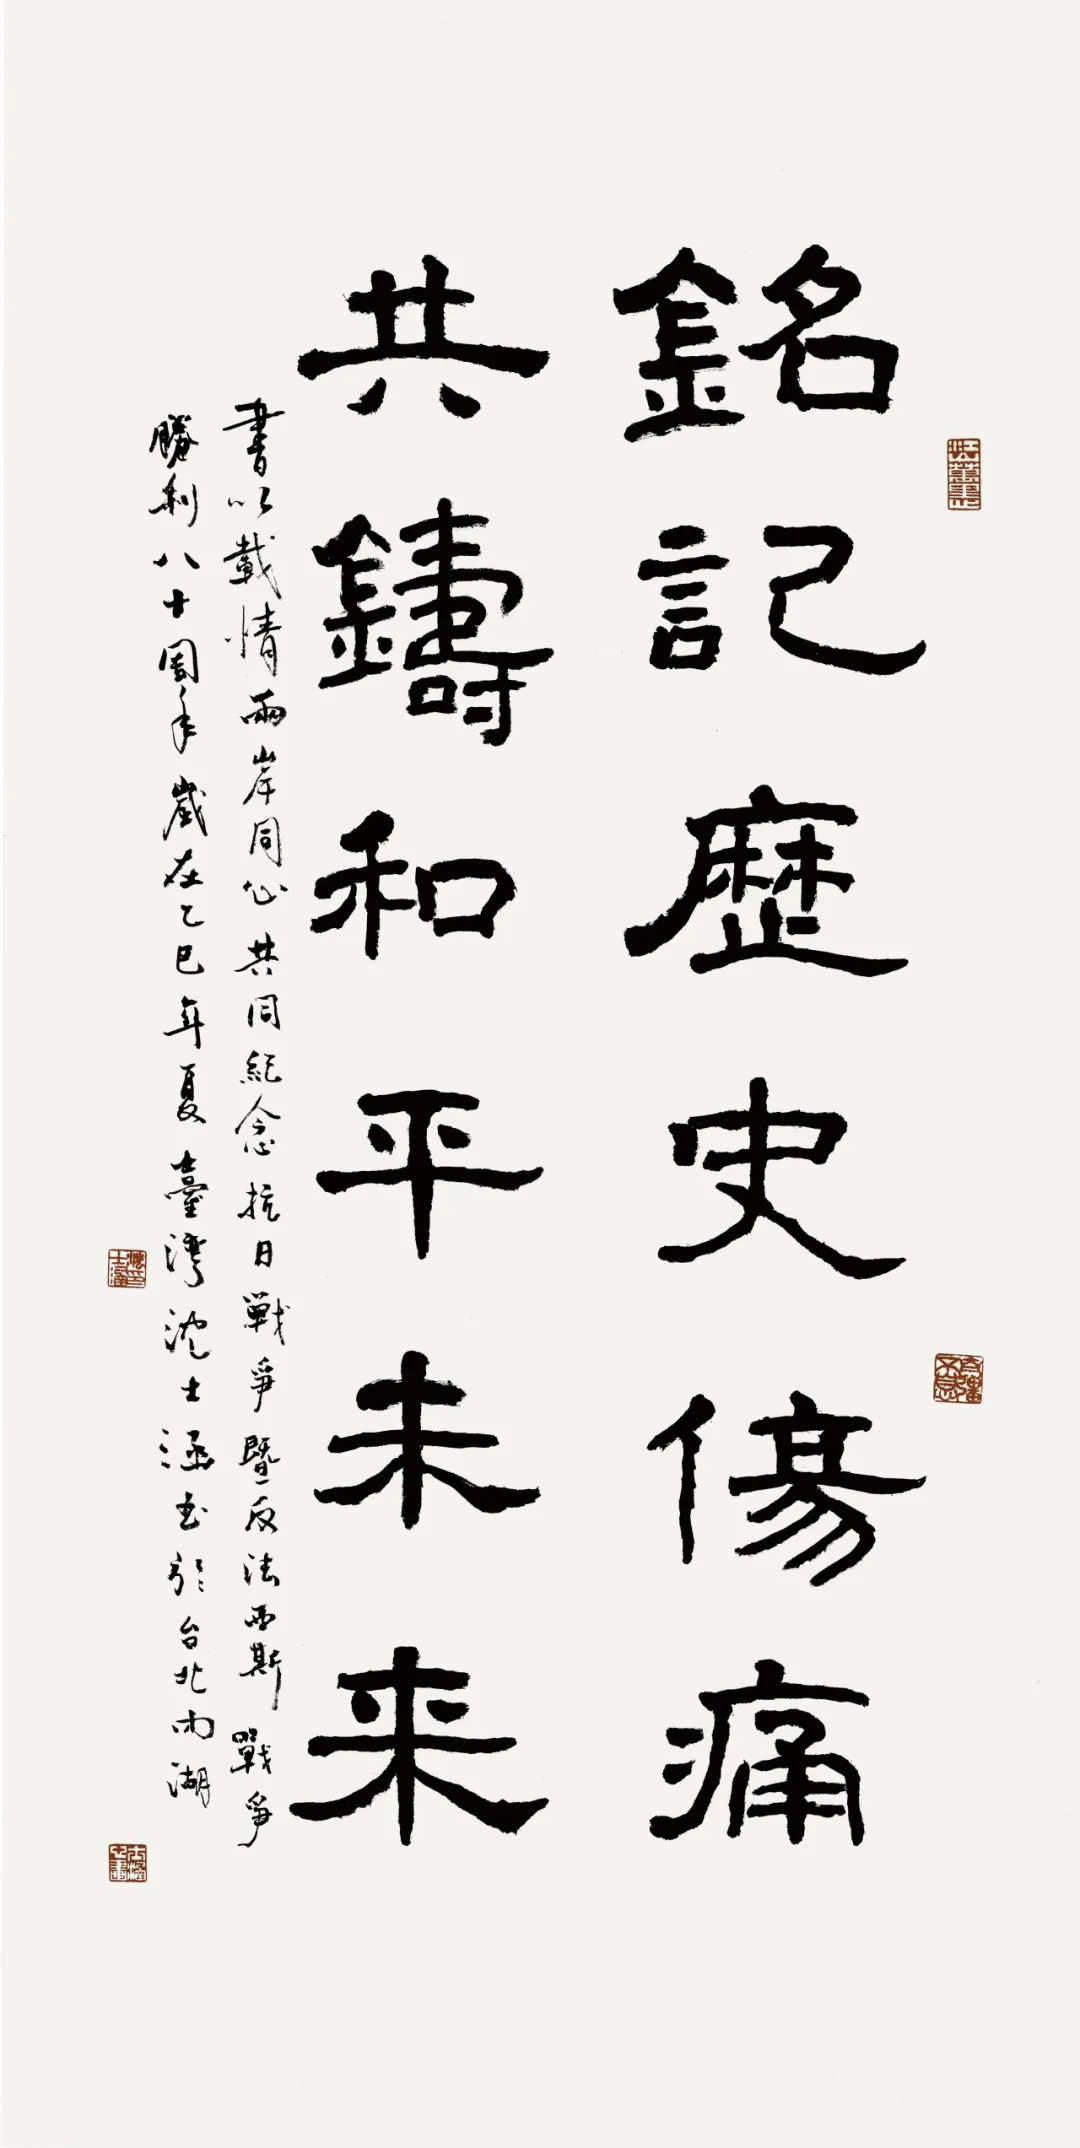 銘記歷史傷痛
共鑄和平未来
書以載情兩岸同心共同紀念抗日戰爭暨反法西斯戰爭
勝利八十周年歲在乙巳年夏臺灣沈士涵書於台北內湖
自強不息